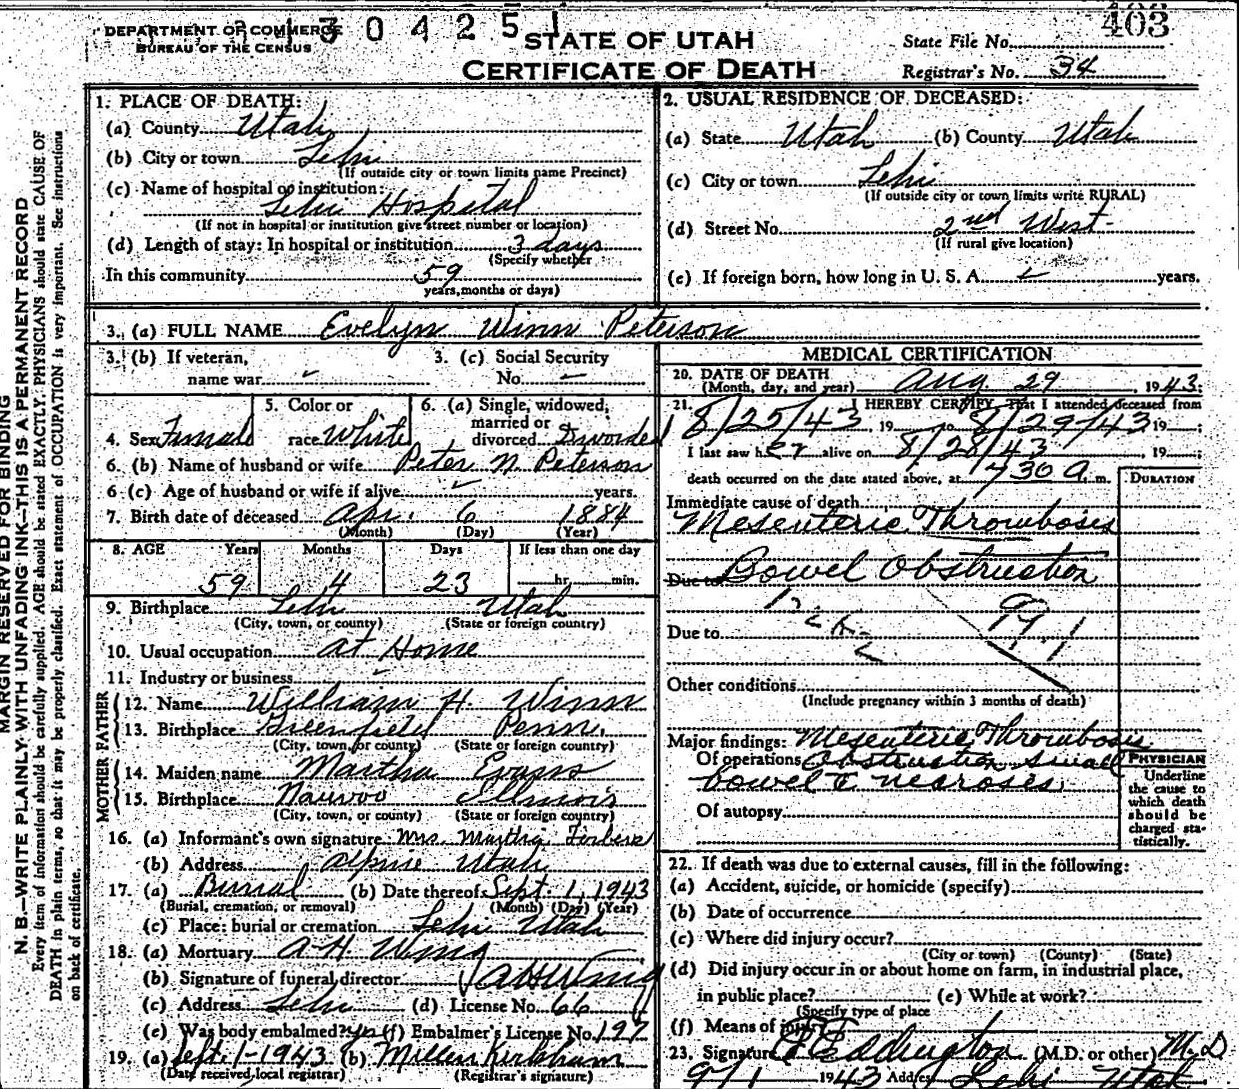 DEPARTMENT OF COMMERCE
BUREAU OF THE CENSUS
1304251
STATE OF UTAH
CERTIFICATE OF DEATH
403
State File No.
Registrar's No. 34
MARGIN RESERVED FOR BINDING
N. B.—WRITE PLAINLY WITH UNFADING INK—THIS IS A PERMANENT RECORD
Every item of information should be carefully supplied. AGE should be stated EXACTLY. PHYSICIANS should state CAUSE OF
DEATH in plain terms, so that it may be properly classified. Exact statement of OCCUPATION is very important. See instructions
on back of certificate.
1. PLACE OF DEATH:
(a) County Utah
(b) City or town Lehi
(If outside city or town limits name Precinct)
(c) Name of hospital or institution:
Lehi Hospital
(If not in hospital or institution give street number or location)
(d) Length of stay: In hospital or institution 3 days
(Specify whether
In this community 59
years, months or days)
2. USUAL RESIDENCE OF DECEASED:
(a) State Utah (b) County Utah
(c) City or town Lehi
(If outside city or town limits write RURAL)
(d) Street No. 2nd West
(If rural give location)
(e) If foreign born, how long in U. S. A. years.
3. (a) FULL NAME Evelyn Winn Peterson
3. (b) If veteran,
name war -
3. (c) Social Security
No. -
4. Sex Female
5. Color or
race White
6. (a) Single, widowed,
married or
divorced Divorced
6. (b) Name of husband or wife Peter N. Peterson
6 (c) Age of husband or wife if alive - years.
7. Birth date of deceased Apr. 6 1884
(Month) (Day) (Year)
8. AGE Years Months Days If less than one day
59 4 23 hr. min.
9. Birthplace Lehi Utah
(City, town, or county) (State or foreign country)
10. Usual occupation at Home
11. Industry or business -
FATHER
12. Name William H. Winn
13. Birthplace Greenfield Penn.
(City, town, or county) (State or foreign country)
MOTHER
14. Maiden name Martha Evans
15. Birthplace Nauvoo Illinois
(City, town, or county) (State or foreign country)
16. (a) Informant's own signature Mrs. Martha
(b) Address Alpine Utah
17. (a) Burial (b) Date thereof Sept. 1, 1943
(Burial, cremation, or removal) (Month) (Day) (Year)
(c) Place: burial or cremation Lehi Utah
18. (a) Mortuary A H Wing
(b) Signature of funeral director A H Wing
(c) Address Lehi (d) License No. 66
(e) Was body embalmed? yes (f) Embalmer's License No. 197
19. (a) Sept. 1-1943 (b) Kirkham
(Date received local registrar) (Registrar's signature)
MEDICAL CERTIFICATION
20. DATE OF DEATH
(Month, day, and year) Aug 29, 1943;
21. I HEREBY CERTIFY, That I attended deceased from
8/25/43, 19 to 8/29/43 19 ;
I last saw her alive on 8/28/43, 19 ;
death occurred on the date stated above, at 7 30 a. m.
DURATION
Immediate cause of death
Mesenteric Thrombosis
Due to Bowel Obstruction
Due to 99.1
Other conditions
(Include pregnancy within 3 months of death)
Major findings: Mesenteric Thrombosis
Of operations Obstruction small
bowel c necroses
Of autopsy
PHYSICIAN
Underline
the cause to
which death
should be
charged sta-
tistically.
22. If death was due to external causes, fill in the following:
(a) Accident, suicide, or homicide (specify)
(b) Date of occurrence
(c) Where did injury occur?
(City or town) (County) (State)
(d) Did injury occur in or about home on farm, in industrial place,
in public place? (e) While at work?
(Specify type of place
(f) Means of injury
23. Signature Eddington (M.D. or other) M.D
9/1 1943 Address Lehi Utah